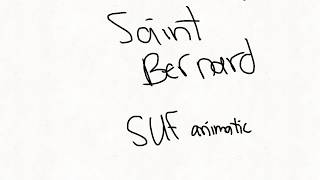 Saint
Bernard
SUF animatic